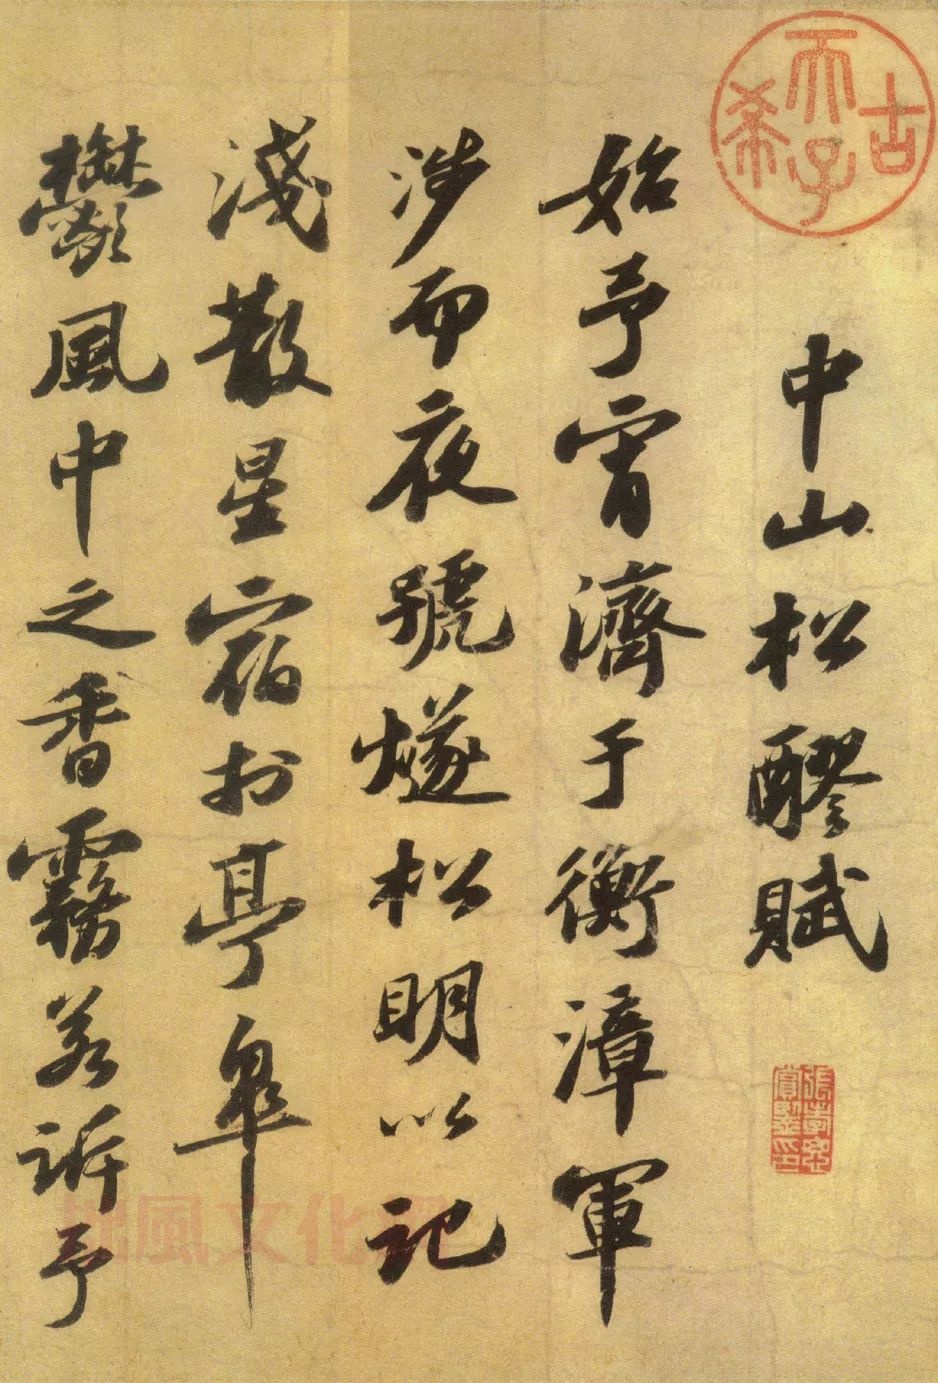 古希天子
中山松醪賦
張孝思賞鑒印
始予宵濟于衡漳軍
涉而夜號燧松明以記
淺散星宿於亭皋
鬱風中之香霧若訴予
風文化